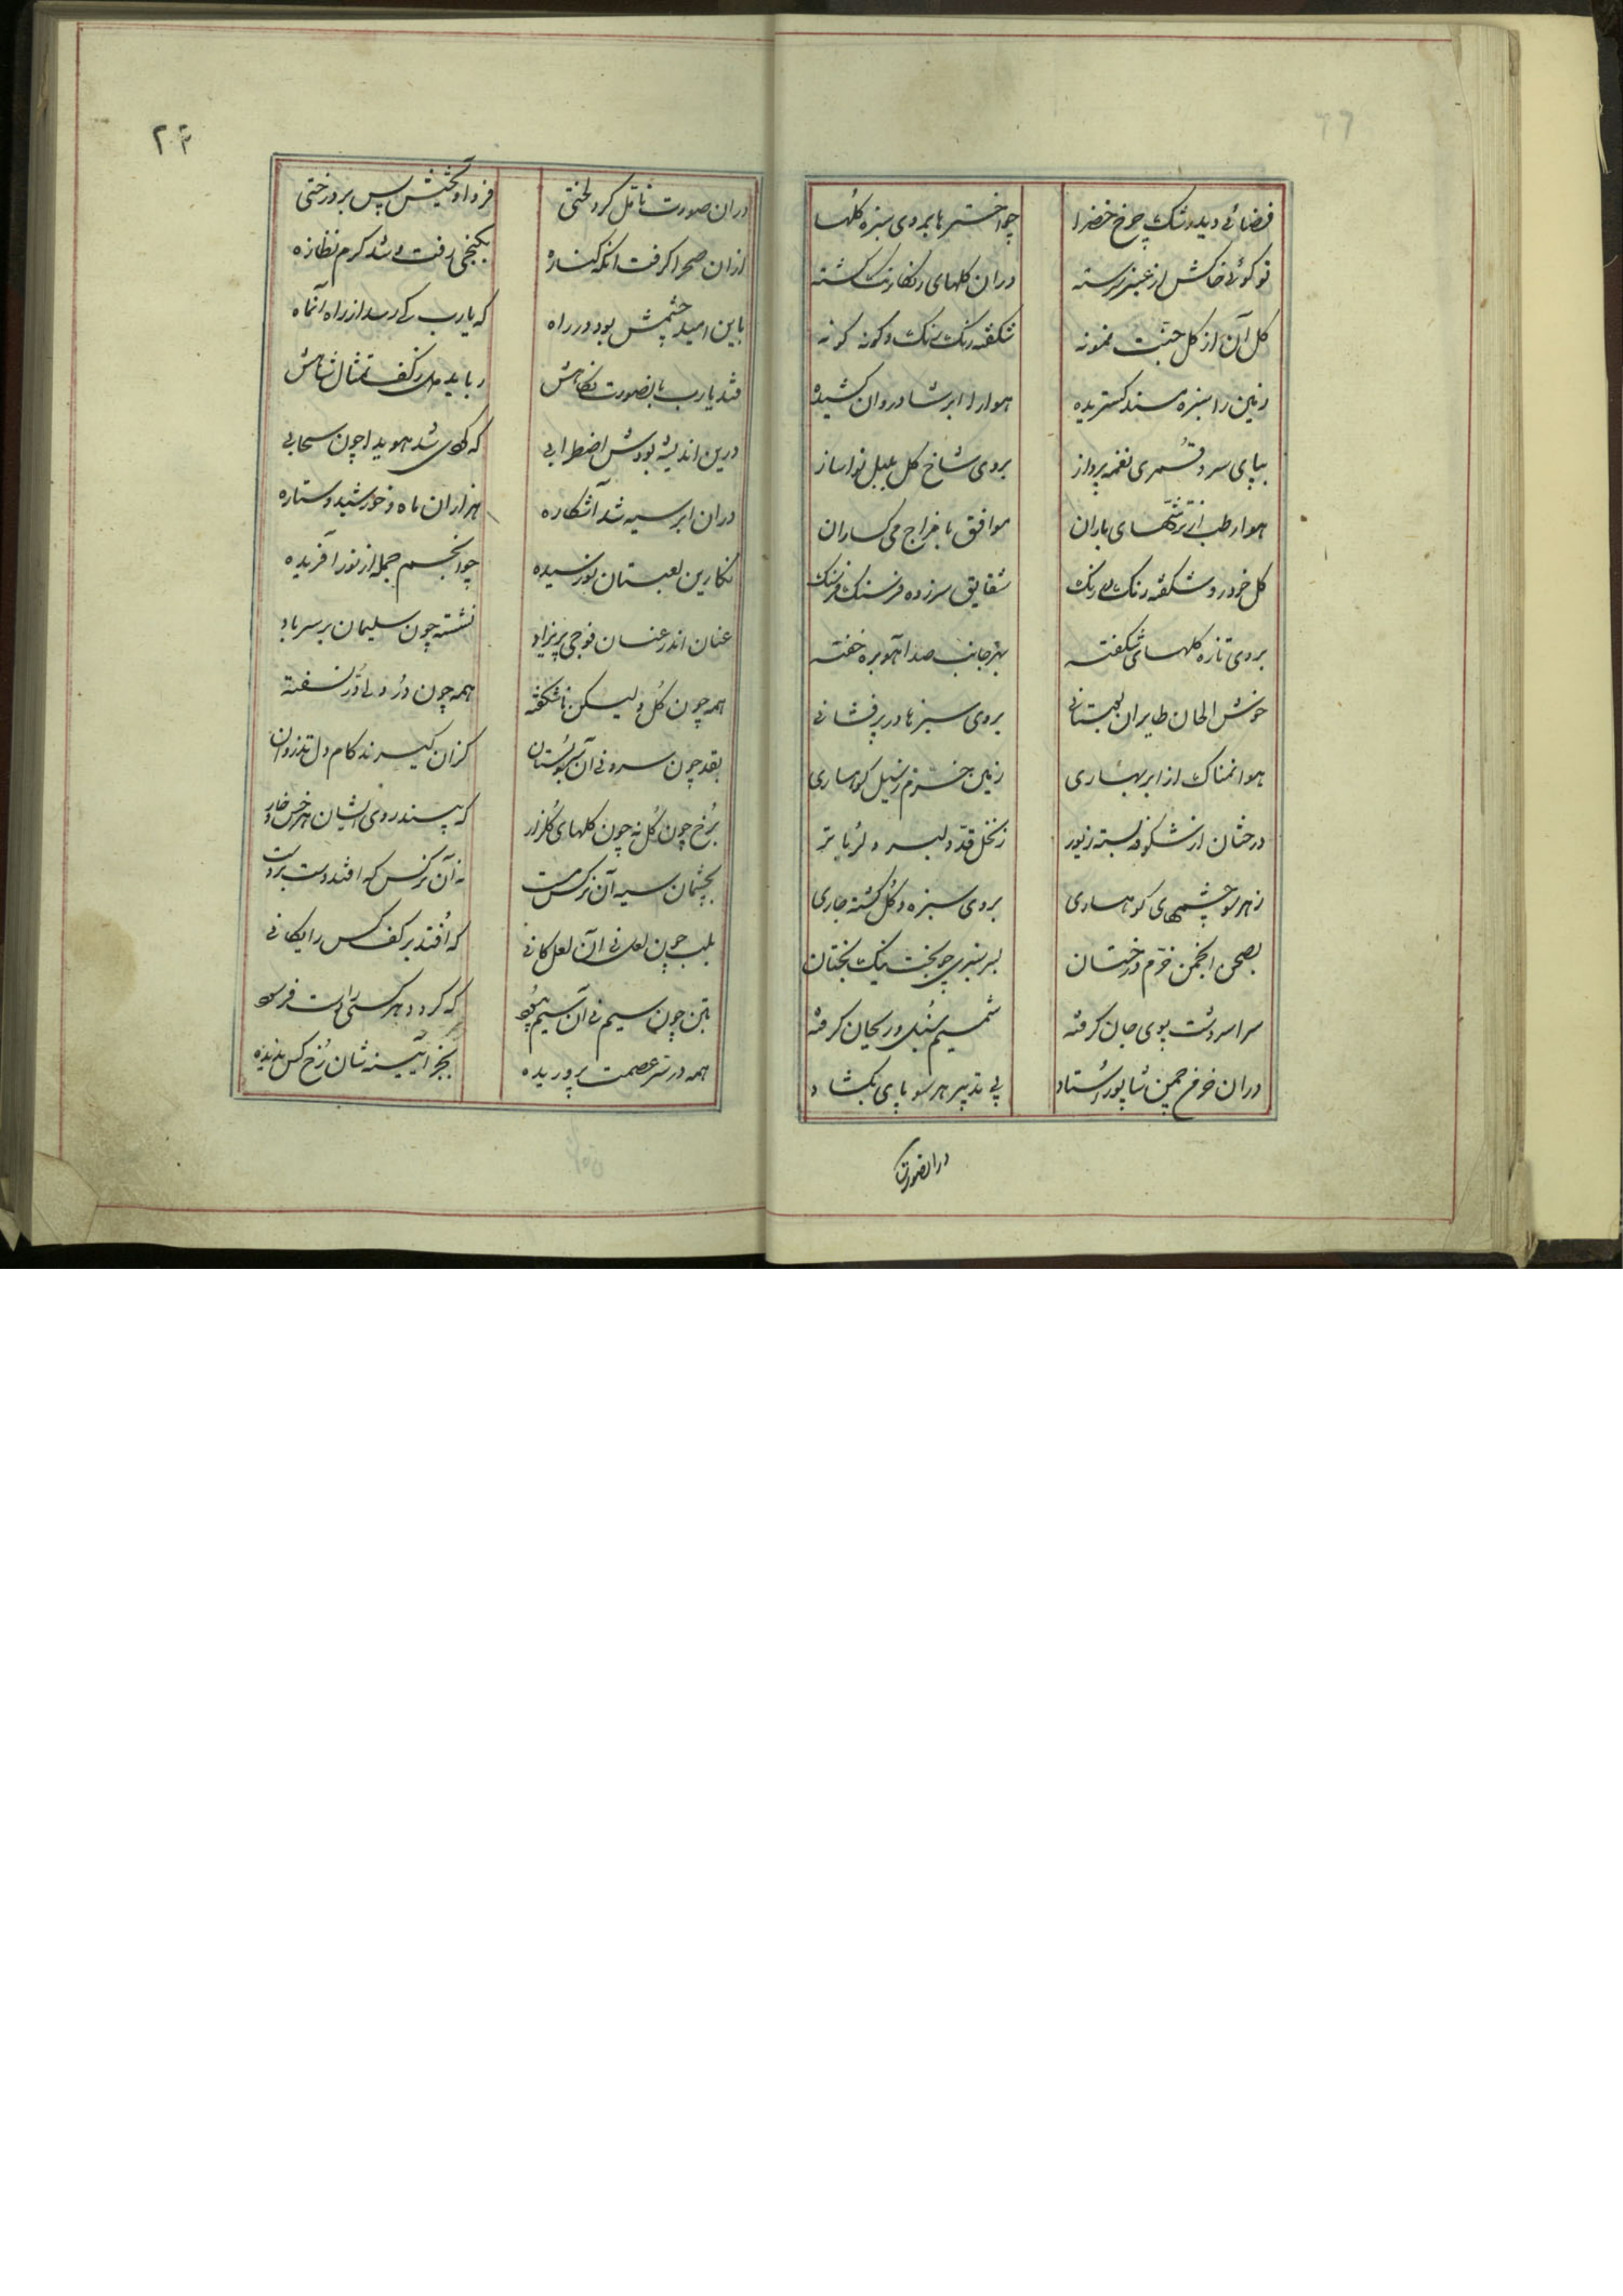 فضائی دید رشک چرخ خضرا چو اخترها بروی سبزه گلها
تو گوئی خاکش از عنبر سرشته دران گلهای رنگارنگ گشته
گل آن از گل جنت نمونه شگفته رنگ رنگ و گونه گونه
زمین را سبزه مسند گستریده هوا را ابر شادروان کشیده
بپای سرو قمری نغمه پرداز بروی شاخ گل بلبل نواساز
هوا رطب از ترشحهای باران موافق با مزاج می کساران
گل خودرو شگفته رنگ بی رنگ شقایق سرزده فرسنگ فرسنگ
بروی تازه گلهای شگفته بهر جانب صد آهو بره خفته
خوش الحان طایران بوستانی بروی سبزها در پرفشانی
هوا نمناک از ابر بهاری زمین خرم ز سیل کوهساری
درختان از شکوفه بسته زیور ز نخل قد دلبر دلربا تر
ز هر سو چشمهای کوهساری بروی سبزه و گل گشته جاری
بصحن انجمن خرم درختان بسر سبزی چو بخت نیک بختان
سراسر دشت بوی جان گرفته شمیم سنبل و ریحان گرفته
دران فرخ چمن شاپور استاد پی تدبیر هر سو پای بگشاد
درانصورت
۲۰۴
دران صورت تامل کرد لختی فرو آویختش پس بر درختی
ازان صحرا گرفت آنگه کناره بکنجی رفت و شد گرم نظاره
باین امید چشمش بود در راه که یارب کی رسد از راه آنماه
فتد یارب بانصورت نگاهش رباید دل ز کف تمثال شاهش
درین اندیشه بودش اضطرابی که گردی شد هویدا چون سحابی
دران ابر سیه شد آشکاره هزاران ماه و خورشید و ستاره
نگارین لعبتان نورسیده چو انجم جمله از نور آفریده
عنان اندر عنان فوجی پریزاد نشسته چون سلیمان بر سر باد
همه چون گل ولیکن ناشگفته همه چون در ولی در نسفته
بقد چون سرو نی آن سرو بستان کزان گیرند کام دل تذروان
برخ چون گل نه چون گلهای گلزار که بیند روی ایشان هر خس و خار
بچشمان سیه آن نرگس مست نه آن نرگس که افتد دست بر دست
بلب چون لعل نی آن لعل کانی که افتد بر کف کس رایگانی
بتن چون سیم نی آن سیم که گردد هر کسی را
همه در ستر عصمت پروریده بجز آیینه شان رخ کس ندیده